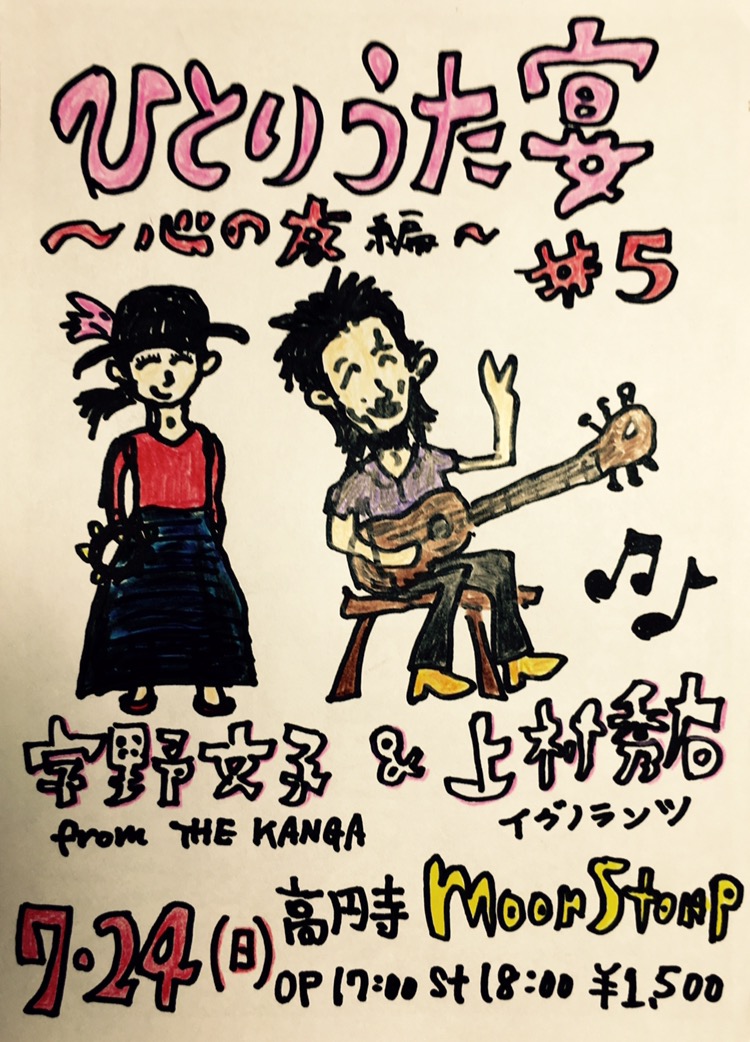 ひとりうた宴
〜心の友編〜
#5
宇野女子 & 上村
from THE KANGA
イグノランツ
7・24(日)
高円寺 MoonStomp
OP 17:00 St 18:00 ¥1,500